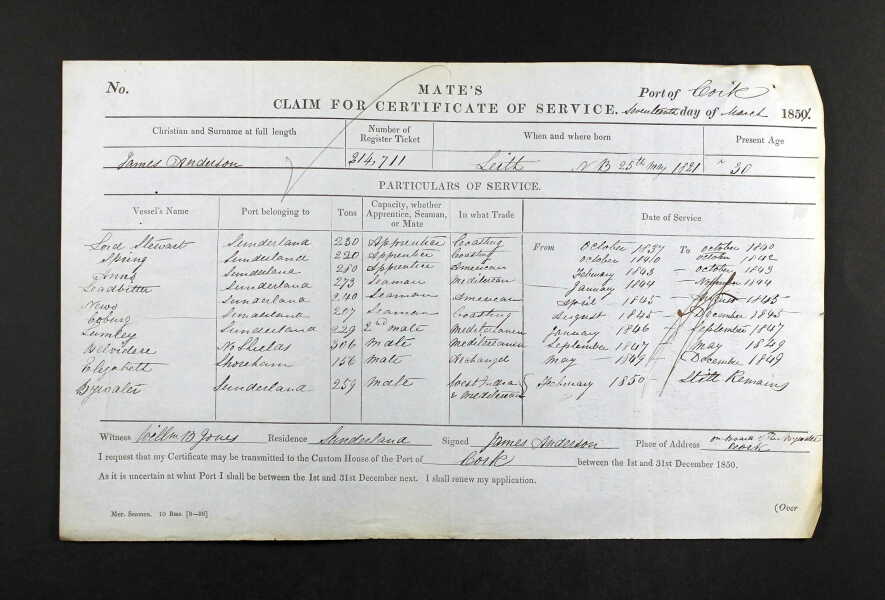 No. MATE'S Port of Cork
CLAIM FOR CERTIFICATE OF SERVICE. Seventeenth day of March 1851.
Christian and Surname at full length Number of Register Ticket When and where born Present Age
James Anderson 314,711 Leith N B 25th May 1821 30
PARTICULARS OF SERVICE.
Vessel's Name Port belonging to Tons Capacity, whether Apprentice, Seaman, or Mate In what Trade Date of Service
Lord Stewart Sunderland 230 Apprentice Coasting From October 1837 To October 1840
Spring Sunderland 220 Apprentice Coasting October 1840 October 1842
Anns Sunderland 260 Apprentice American February 1843 – October 1843
Leadbitter Sunderland 273 Seaman January 1844 – 1844
News Sunderland 240 Seaman American April 1845 – August 1845
Coburg Sunderland 207 Seaman Coasting August 1845 – December 1845
Lumley Sunderland 229 2nd Mate January 1846 – September 1847
Belvidere No Shields 306 Mate September 1847 – May 1849
Elizabeth Shoreham 156 Mate Archangel May – 1849 – December 1849
Bywater Sunderland 259 Mate West India & February 1850 – Still Remains
Witness Willm B Jones Residence Sunderland Signed James Anderson Place of Address on Board of the Bywater Cork
I request that my Certificate may be transmitted to the Custom House of the Port of Cork between the 1st and 31st December 1850.
As it is uncertain at what Port I shall be between the 1st and 31st December next. I shall renew my application.
Mer. Seamen. 10 Rms. (Over